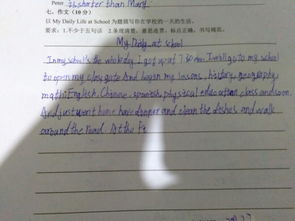 Peter is shorter than Mary.
七、作文（10分）
以 My Daily Life at School 为题描写你在学校的一天的生活。
要求：1.不少于五句话 2.条理清楚，意思连贯，标点正确，书写规范。
My Daily at school
In my school's the whole day. I got up at 7:30 am. I will go to my school
to open my class gate And began my lessons, history, geography
math English. Chinese, spanish, physical education class and soon.
And just went home have dinner and clean the dishes and walk
around the road. At the